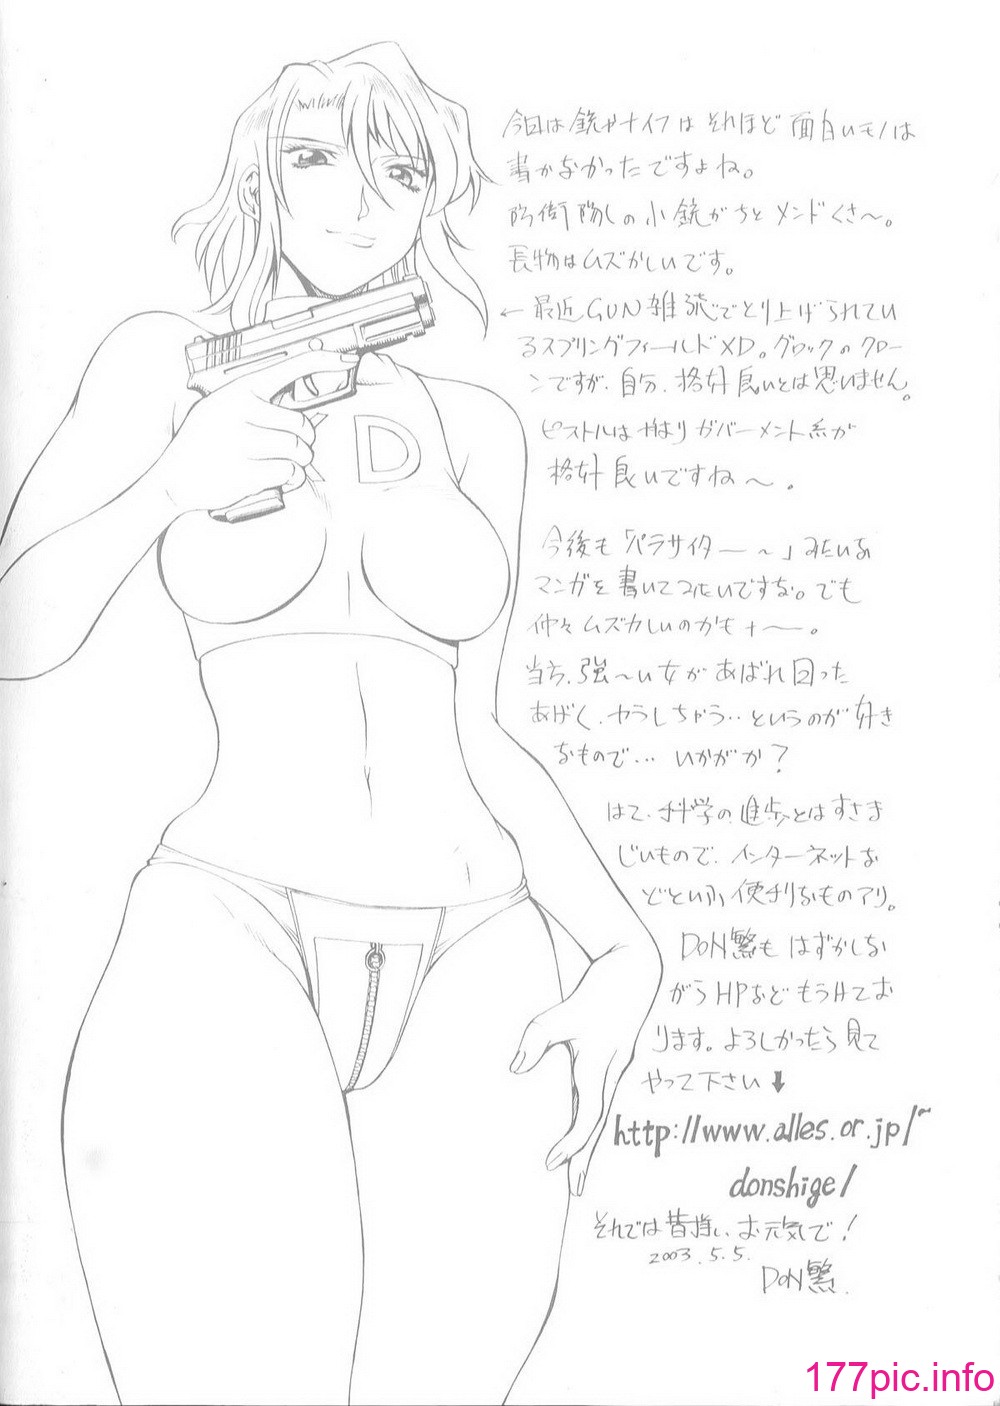 今日は銃やナイフはそれほど面白いモノは
書かなかったですよね。
防衛隊の小銃がちとメンドくさ〜。
長物はムズかしいです。
←最近GUN雑誌でとり上げられてい
るスプリングフィールドXD。グロックのクロー
ンですが、自分、格好良いとは思いません。
ピストルはやはりガバーメント系が
格好良いですね〜。
今後も「パラサイター〜」みたいな
マンガを書いてみたいですな。でも
仲々ムズカしいのかも
強〜い女があばれ回った
あげく、ヤラしちゃう‥というのが好き
なもので… いかがか？
はて、科学の進歩とはすさま
じいもので、インターネットな
どという便利なものアリ。
DON繁もはずかしな
がらHPなどもうけてお
ります。よろしかったら見て
やって下さい⬇
http://www.alles.or.jp/~
donshige/
それでは皆様、お元気で！
2003.5.5.
DON繁.
XD
177pic.info